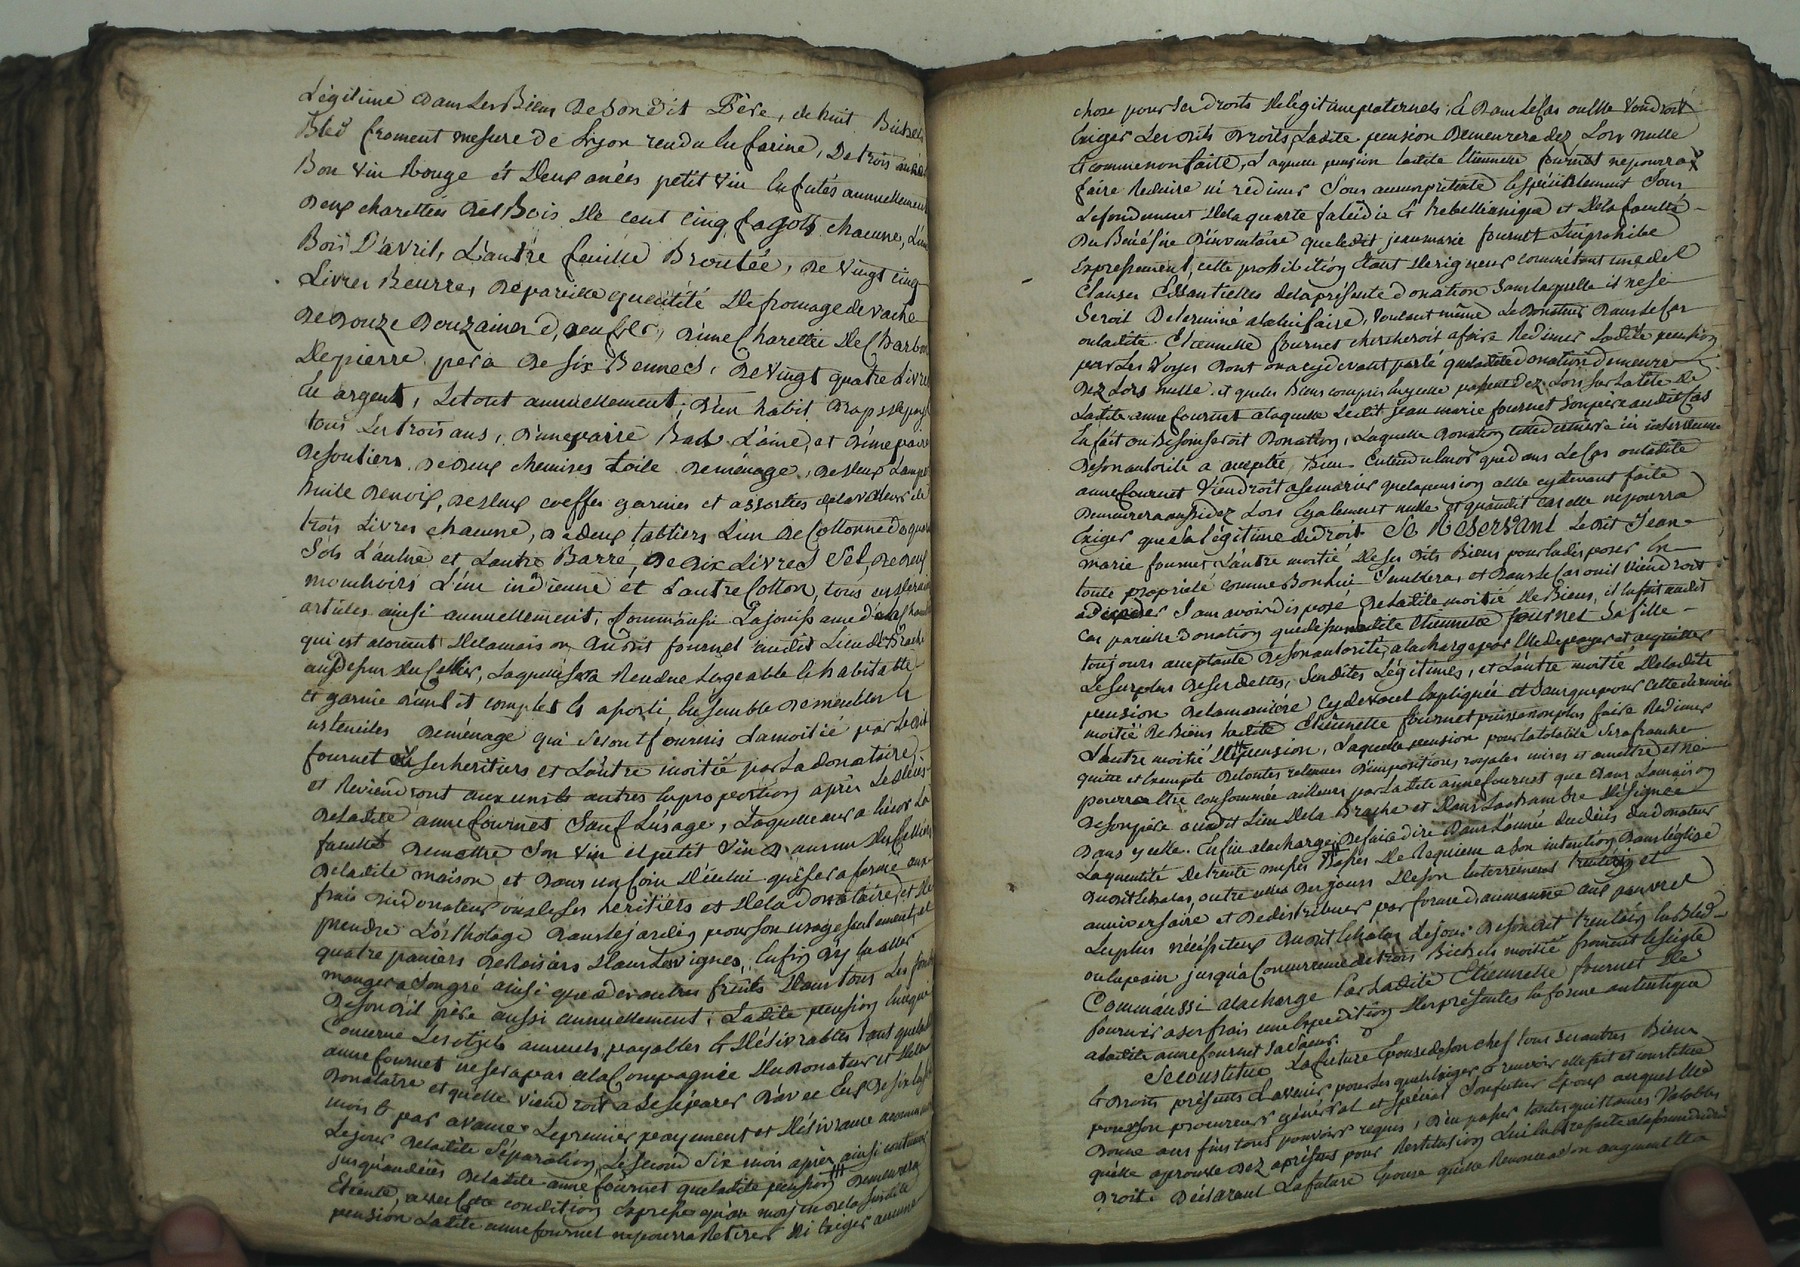 Légitime dans les Biens de sondit Père, de huit Bichets
Bled froment mesure de Lyon rendu en farine, de trois années
Bon vin Rouge et deux anées petit vin enfutés annuellement
deux charettées des Bois de cent cinq fagots chacune, L'une
Bois D'avril, L'autre feuille Broutée, de vingt cinq
Livres Beurre, de pareille quantité de fromage de vache
de douze Douzaines d'oeufs, d'une charettée de Charbon
de pierre pera de six Bennes, de vingt quatre Livres
en argent, Le tout annuellement; d'un habit drap du pays
tous Les trois ans, d'une paire Bas Laine, et d'une paire
de souliers, de deux chemises toile de ménage, de deux
huile de noix, de deux coeffes garnies et assorties de la valeur de
trois Livres chacune, de deux tabliers L'un de Cottonne de
sols L'aulne et L'autre Barré, de dix Livres Sel, de deux
mouchoirs L'un indienne et L'autre Cotton, tous
articles ainsi annuellement, Comm'aussi La jouissance de la chambre
qui est de la maison dudit fournet audit Lieu de La Brache
au dessus du Cellier, Laquelle sera Rendue Logeable et habitable
et garnie d'un lit complet et assorti, ensemble de meubles et
ustenciles de ménage qui seront fournis La moitié par Ledit
fournet ou ses heritiers et L'autre moitié par La donataire,
et Reviendront aux uns et autres en proportion après Le décès
de Ladite anne fournet Sauf L'usage, Laquelle aura encor La
faculté de mettre son vin et petit vin dans un des Celliers
de Ladite maison, et dans un Coin d'icelui qui sera fermé aux
frais du donateur ou de ses heritiers et de La donataire, et de
prendre L'orthollage dans Le jardin pour son usage seulement, et
quatre paniers de Raisins dans Les vignes, Enfin d'y en aller
manger a son gré ainsi que d'autres fruits dans tous Les fonds
de son dit père aussi annuellement; Ladite pension en ce qui
Concerne Les objets annuels, payables et délivrables tant que Ladite
anne fournet ne sera pas en la Compagnie du donateur et de la
Donataire et qu'elle viendroit a se séparer d'avec Eux de six en six
mois et par avance, Le premier payement et délivrance
Le jour de Ladite Séparation, Le second six mois après ainsi continuer
jusqu'au décès de Ladite anne fournet que Ladite pension demeurera
Eteinte, avec Cette condition Expresse qu'au moyen de la susdite
pension Ladite anne fournet ne pourra Retirer ni Exiger aucune
chose pour ses droits de légitime paternels, et dans Le Cas ou elle voudroit
Exiger Lesdits Droits Ladite pension Demeurera dez Lors nulle
et comme non faite, Laquelle pension Ladite Etiennette fournet ne pourra
faire Reduire ni redimer Sous aucun prétexte et spécialement sous
Le fondement de la quarte falcidie et trebellianique et de la faculté
du Bénéfice d'inventaire que ledit jean marie fournet Lui prohibe
Expressement, cette prohibition Etant de rigueur comme étant une des
Clauses Essentielles de la présente donation sans laquelle il ne se
seroit Determiné a la lui faire, voulant même Le donateur dans Le cas
ou Ladite Etiennette fournet chercheroit a faire Redimer Ladite pension
par Les voyes dont on a cy devant parlé que Ladite donation demeure
Dez Lors nulle et que les Biens compris en icelle passent dez Lors sur La tête de
Ladite anne fournet a laquelle Ledit jean marie fournet son père audit Cas
En fait ou Besoin seroit Donation, Laquelle Donation cette dernière ici intervenue
de son autorité a acceptée, Bien Entendu encor que dans Le Cas ou Ladite
anne fournet viendroit a se marier que la pension a elle cy devant faite
Demeurera aussi dez Lors Egalement nulle et qu'audit cas elle ne pourra
Exiger que sa légitime de droit. Se Réservant Ledit Jean
marie fournet L'autre moitié de ses dits Biens pour la disposer En
toute propriété comme Bon lui semblera, et dans Le Cas ou il viendroit
a déceder sans avoir disposé de Ladite moitié de Biens, il en fait audit
cas pareille donation que dessus a Ladite Etiennette fournet Sa fille
toujours acceptante de son autorité, a la charge par Elle de payer et acquitter
Le surplus de ses dettes, Lesdites Légitimes, et L'autre moitié de Ladite
pension de la manière cy devant Expliquée et sans que pour cette dernière
moitié de Biens Ladite Etiennette fournet puisse non plus faire Redimer
L'autre moitié de pension, Laquelle pension pour La totalité sera franche
quitte et Exempte de toutes retenues d'impositions royales mises et a mettre et ne
pourra Etre consommée ailleurs par Ladite anne fournet que dans La maison
de son père audit Lieu de La Brache et dans La chambre désignée
dans y celle. Enfin a la charge de faire dire dans L'année du décès du donateur
La quantité de trente messes Basses de Requiem a son intention dans L'église
dudit Echalas, outre celles des jours de son Enterrement trentain et
anniversaire et de distribuer par forme d'aumonne aux pauvres
Les plus nécessiteux dudit Echalas Le jour de son dit trentain En Bled
ou en pain jusqu'a Concurrence de trois Bichets moitié froment et seigle
Comm'aussi a la charge par Ladite Etiennette fournet de
fournir a ses frais une Expédition des présentes En forme autentique
a Ladite anne fournet sa soeur.
Se constitue La future Epouse de son chef tous ses autres Biens
et Droits présents et avenir, pour Lesquels Exiger et recevoir elle fait et constitue
pour son procureur général et spécial Son futur Epoux auquel Elle
Donne aux fins tous pouvoirs requis, d'en passer toutes quittances valables
qu'elle aprouve dez a présent pour Restitution Lui en être faite a la forme du
Droit. Déclarant La future Epouse qu'elle Renonce a son augment